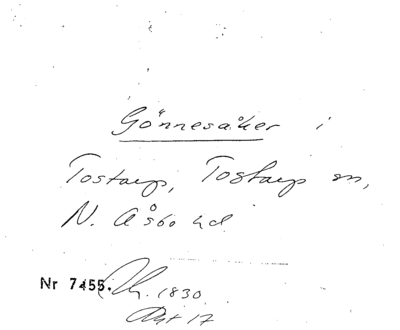 Gönnesåker i
Tostarp, Tostarp sn,
N. Åsbo hd.
Nr 7455. 1830
17